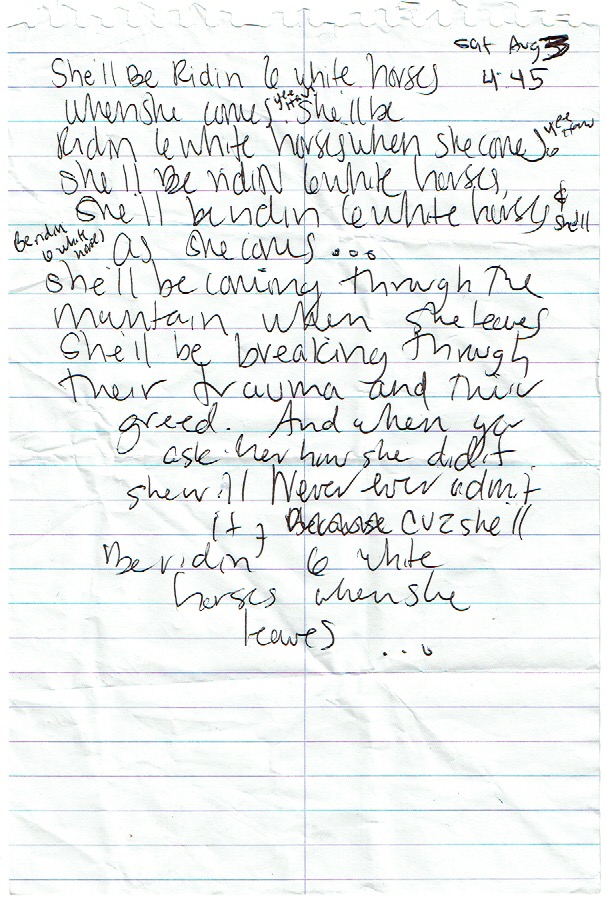 Sat Aug 3
4:45
She'll Be Ridin 6 white horses
when she comes yee Haw She'll be
Ridin 6 white horses when she comes yee Haw
She'll Be ridiN 6 white horses,
She'll be ridin 6 white horses & she'll
Be ridin 6 white horses as she comes ...
She'll be coming through The
mountain when she leaves
She'll be breaking Through
their trauma and Their
greed. And when you
ask her how she did it
she will Never ever admit
it, Because CUZ she'll
Be ridin' 6 white
horses when she
leaves ...